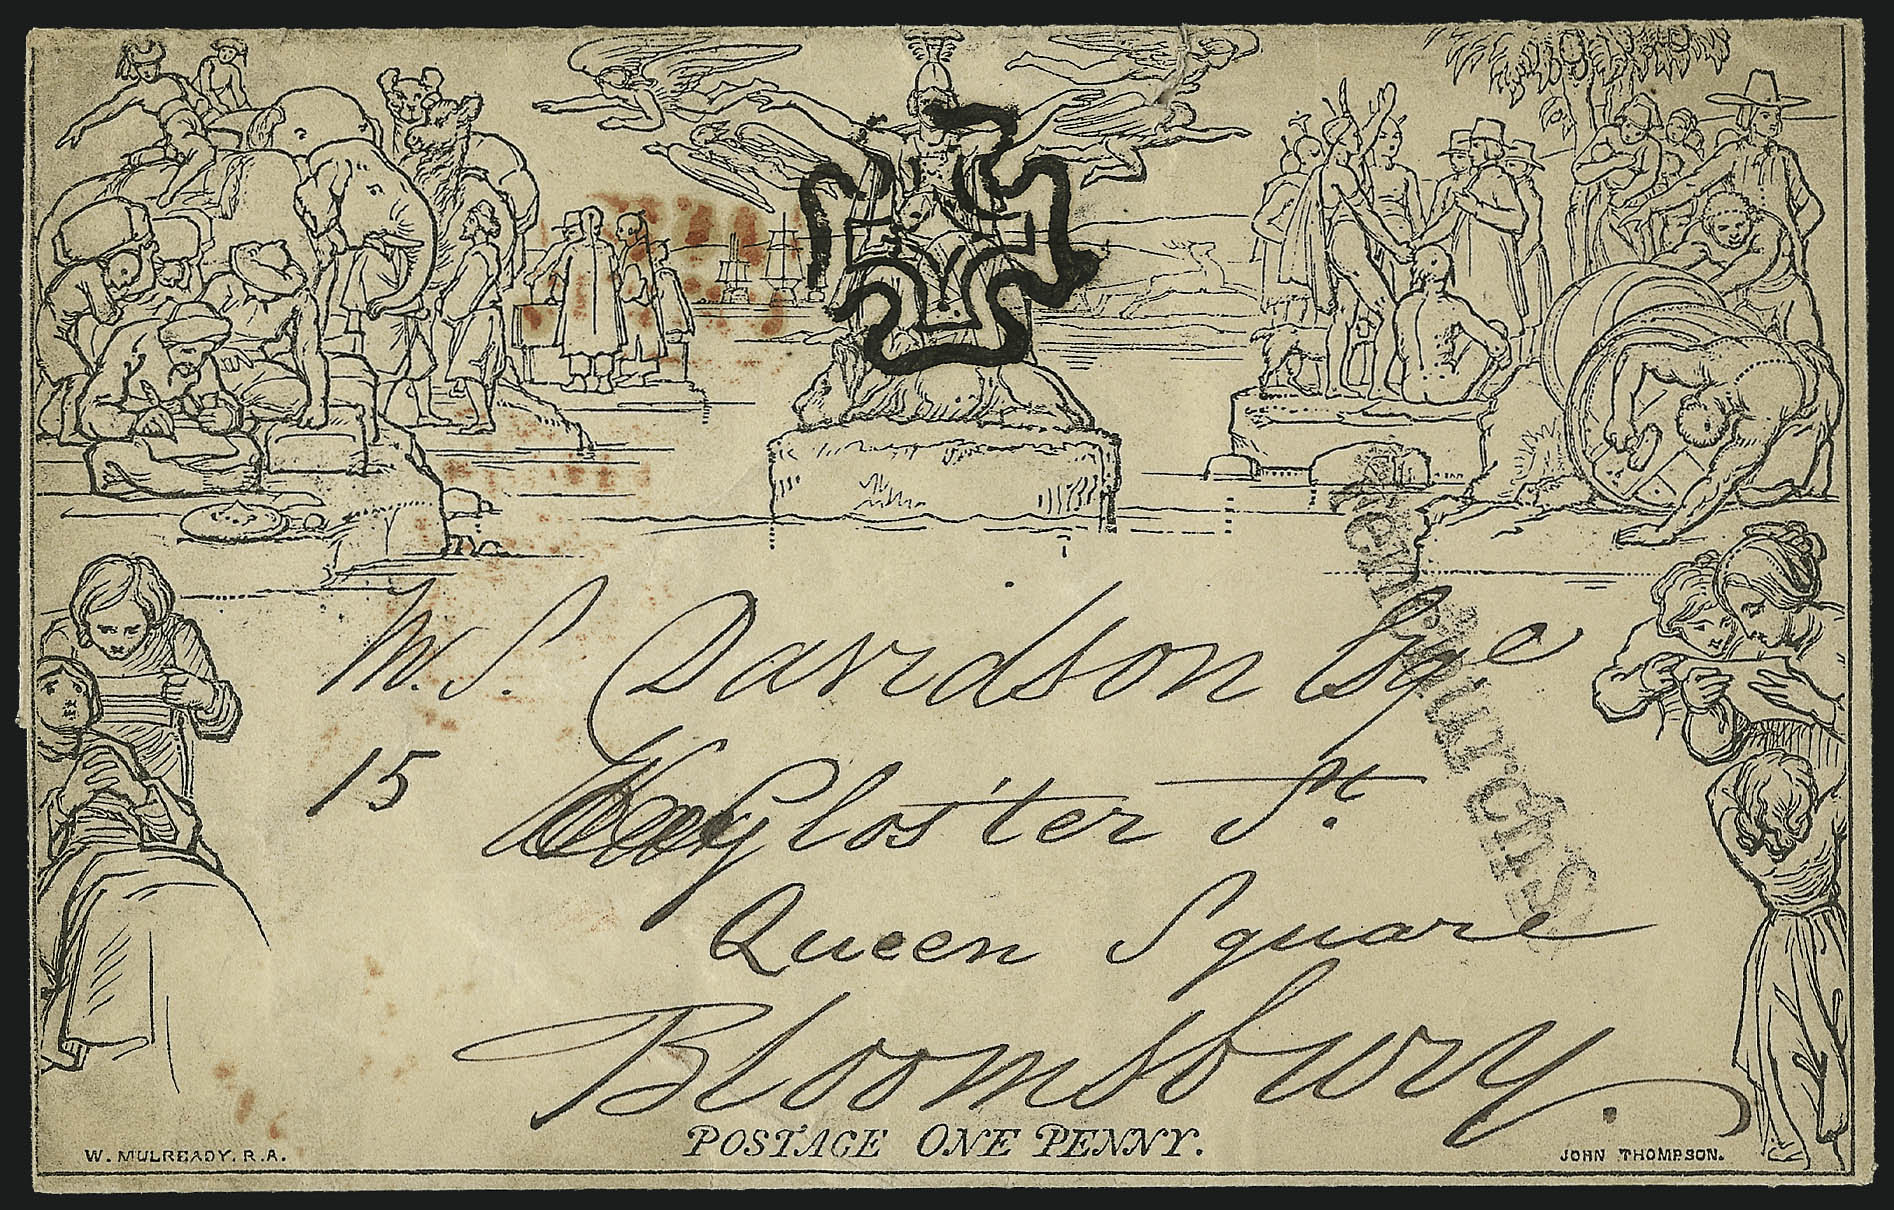 M. S. Davidson Esqe
15 Gloster St.
Queen Square
Bloomsbury.
POSTAGE ONE PENNY.
W. MULREADY. R.A.
JOHN THOMPSON.